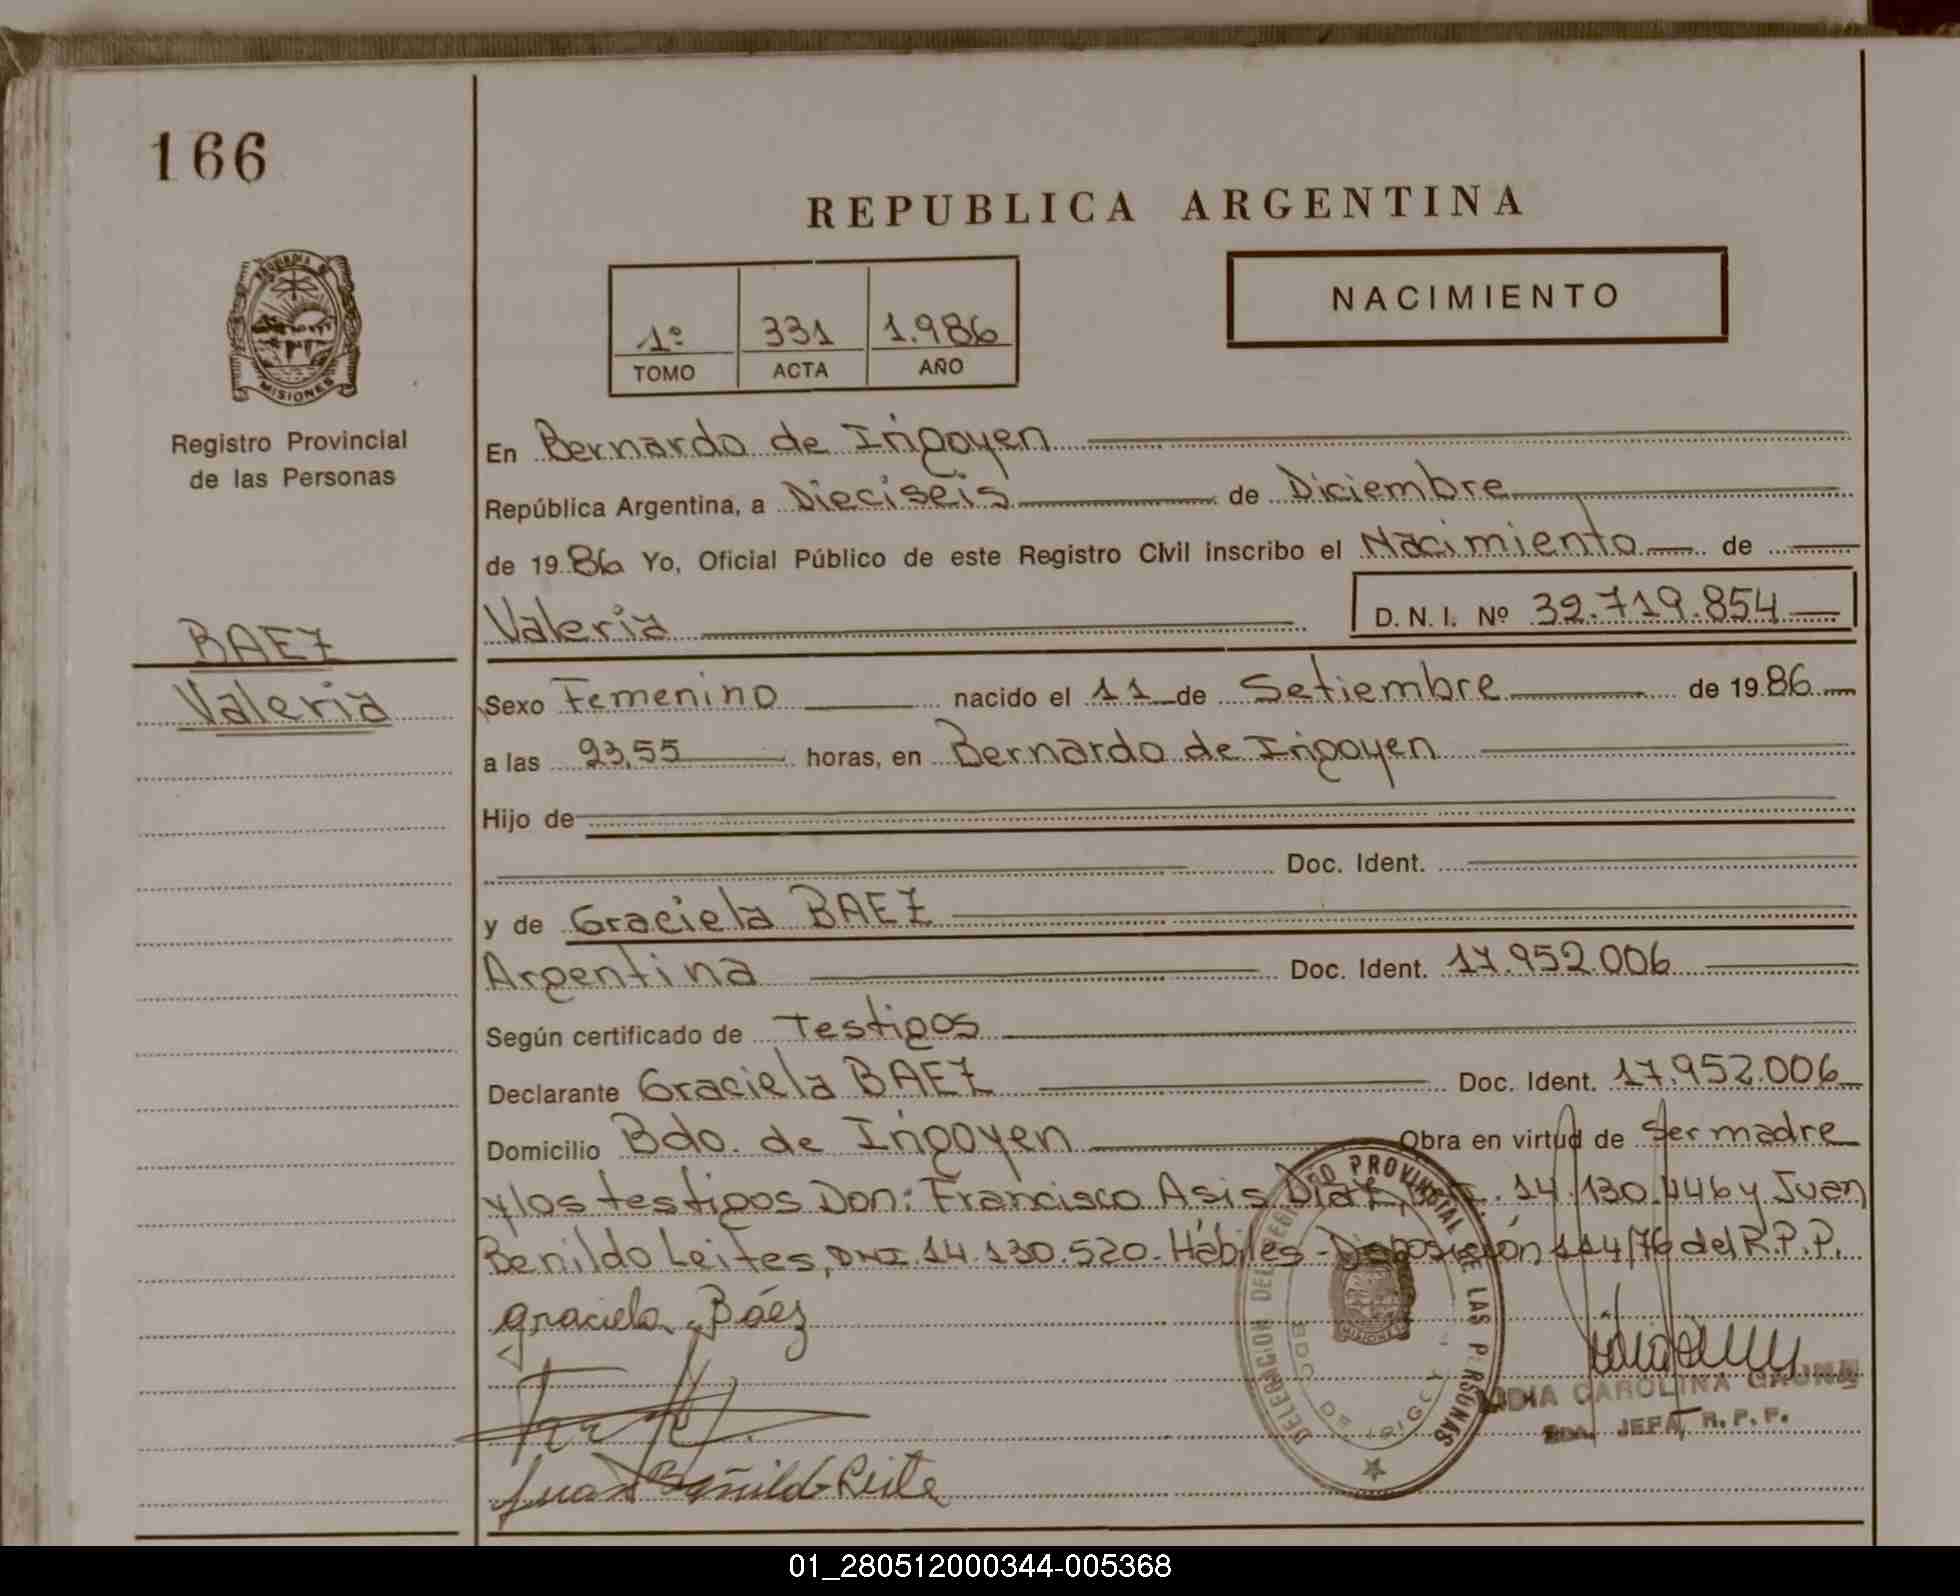 166
REPUBLICA ARGENTINA
NACIMIENTO
1º 331 1.986
TOMO ACTA AÑO
PROVINCIA DE
MISIONES
Registro Provincial
de las Personas
En Bernardo de Irigoyen
República Argentina, a Dieciseis de Diciembre
de 1986 Yo, Oficial Público de este Registro Civil inscribo el Nacimiento de
Valeria D. N. I. Nº 32.719.854
BAEZ
Valeria
Sexo Femenino nacido el 11 de Setiembre de 1986
a las 23,55 horas, en Bernardo de Irigoyen
Hijo de
Doc. Ident.
y de Graciela BAEZ
Argentina Doc. Ident. 17.952.006
Según certificado de Testigos
Declarante Graciela BAEZ Doc. Ident. 17.952.006
Domicilio Bdo. de Irigoyen Obra en virtud de Ser madre
y los testigos Don: Francisco Asis Diaz, 14.130.446 y Juan
Benildo Leites, DNI. 14.130.520. Hábiles - Disposición 114/76 del R.P.P.
graciela Báez
DELEGACION DEL REGISTRO PROVINCIAL DE LAS PERSONAS
BDO. DE IRIGOYEN
MISIONES
LIDIA CAROLINA GAUNA
JEFA R. P. P.
Juan Beñildo Leite
01_280512000344-005368